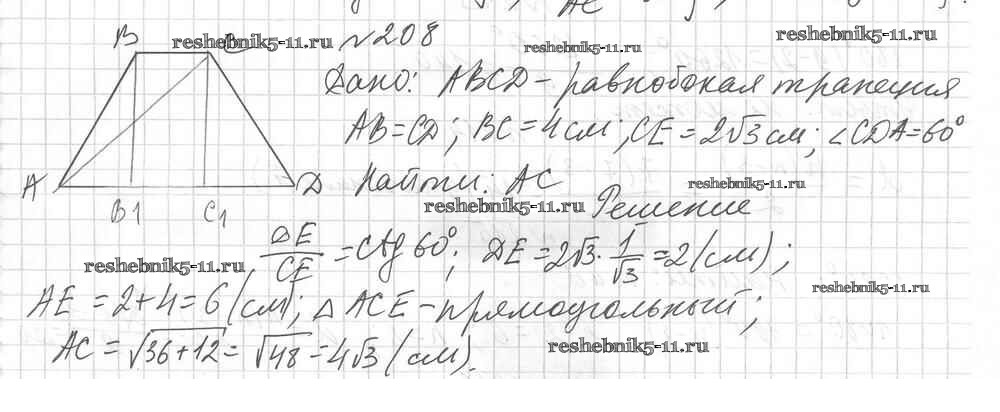 B reshebnik5-11.ru №208 reshebnik5-11.ru
reshebnik5-11.ru
Дано: ABCD – равнобокая трапеция
AB=CD; BC=4см; CE=2√3см; ∠CDA=60°
A D Найти: AC reshebnik5-11.ru
B1 C1 reshebnik5-11.ru Решение
DE/CE = ctg 60°; DE=2√3·1/√3=2(см);
reshebnik5-11.ru reshebnik5-11.ru
AE=2+4=6(см); △ACE – прямоугольный;
AC=√36+12=√48=4√3(см). reshebnik5-11.ru